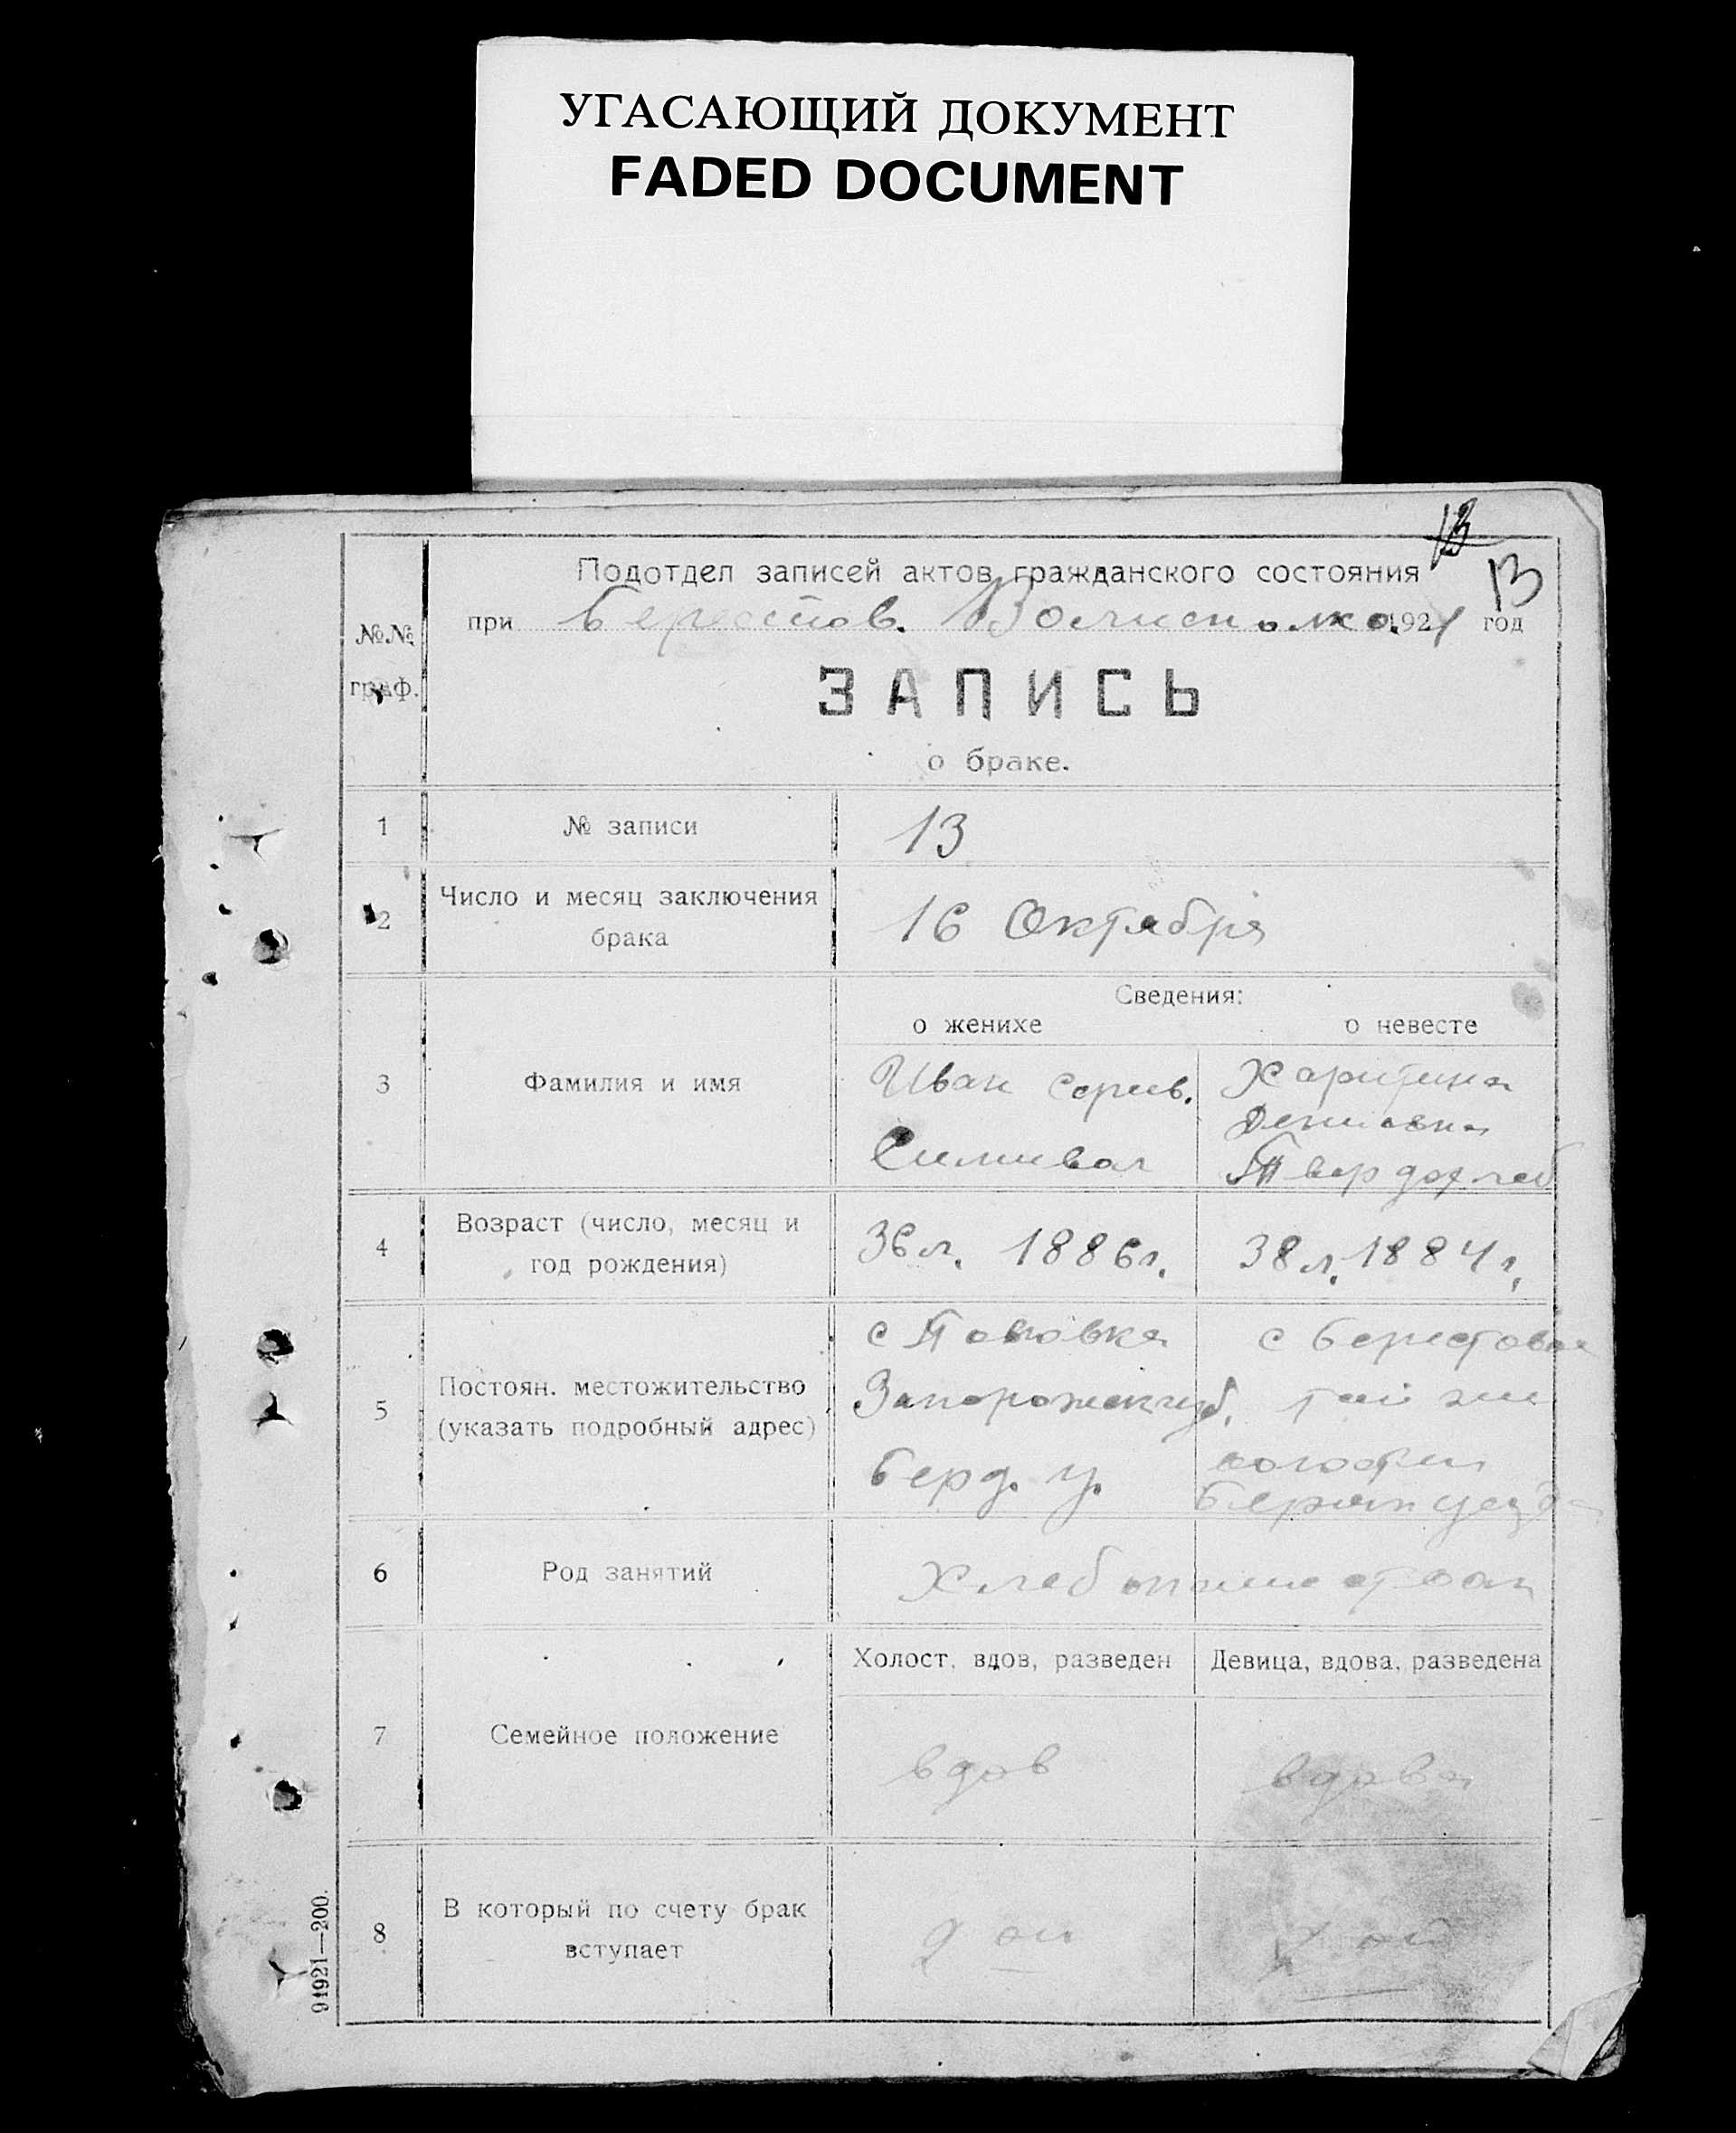 УГАСАЮЩИЙ ДОКУМЕНТ
FADED DOCUMENT
13
13
Подотдел записей актов гражданского состояния
при Берестов. 1921 год
№№ граф.
ЗАПИСЬ
о браке.
1 № записи 13
2 Число и месяц заключения брака 16 Октября
Сведения:
о женихе о невесте
3 Фамилия и имя
Иван
Харитина
Твердохлеб
4 Возраст (число, месяц и год рождения) 36 л. 1886 г. 38 л. 1884 г.
5 Постоян. местожительство (указать подробный адрес)
с Поповка
Запорожск губ.
Берд. у.
с Берестовая
той же
волости
6 Род занятий Хлебопашество
Холост, вдов, разведен Девица, вдова, разведена
7 Семейное положение вдов вдова
8 В который по счету брак вступает 2 ой 2 ой
91921—200.